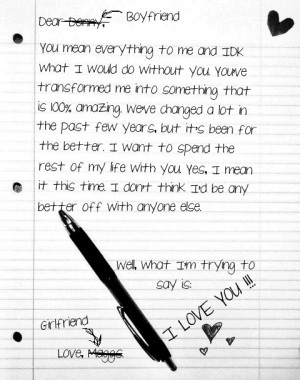 Boyfriend
Dear Donny,
You mean everything to me and IDK
what I would do without you. You've
transformed me into something that
is 100% amazing. We've changed a lot in
the past few years, but it's been for
the better. I want to spend the
rest of my life with you. Yes, I mean
it this time. I don't think I'd be any
better off with anyone else.
Well, what I'm trying to
say is:
I LOVE YOU !!!
Girlfriend
Love, Maggs